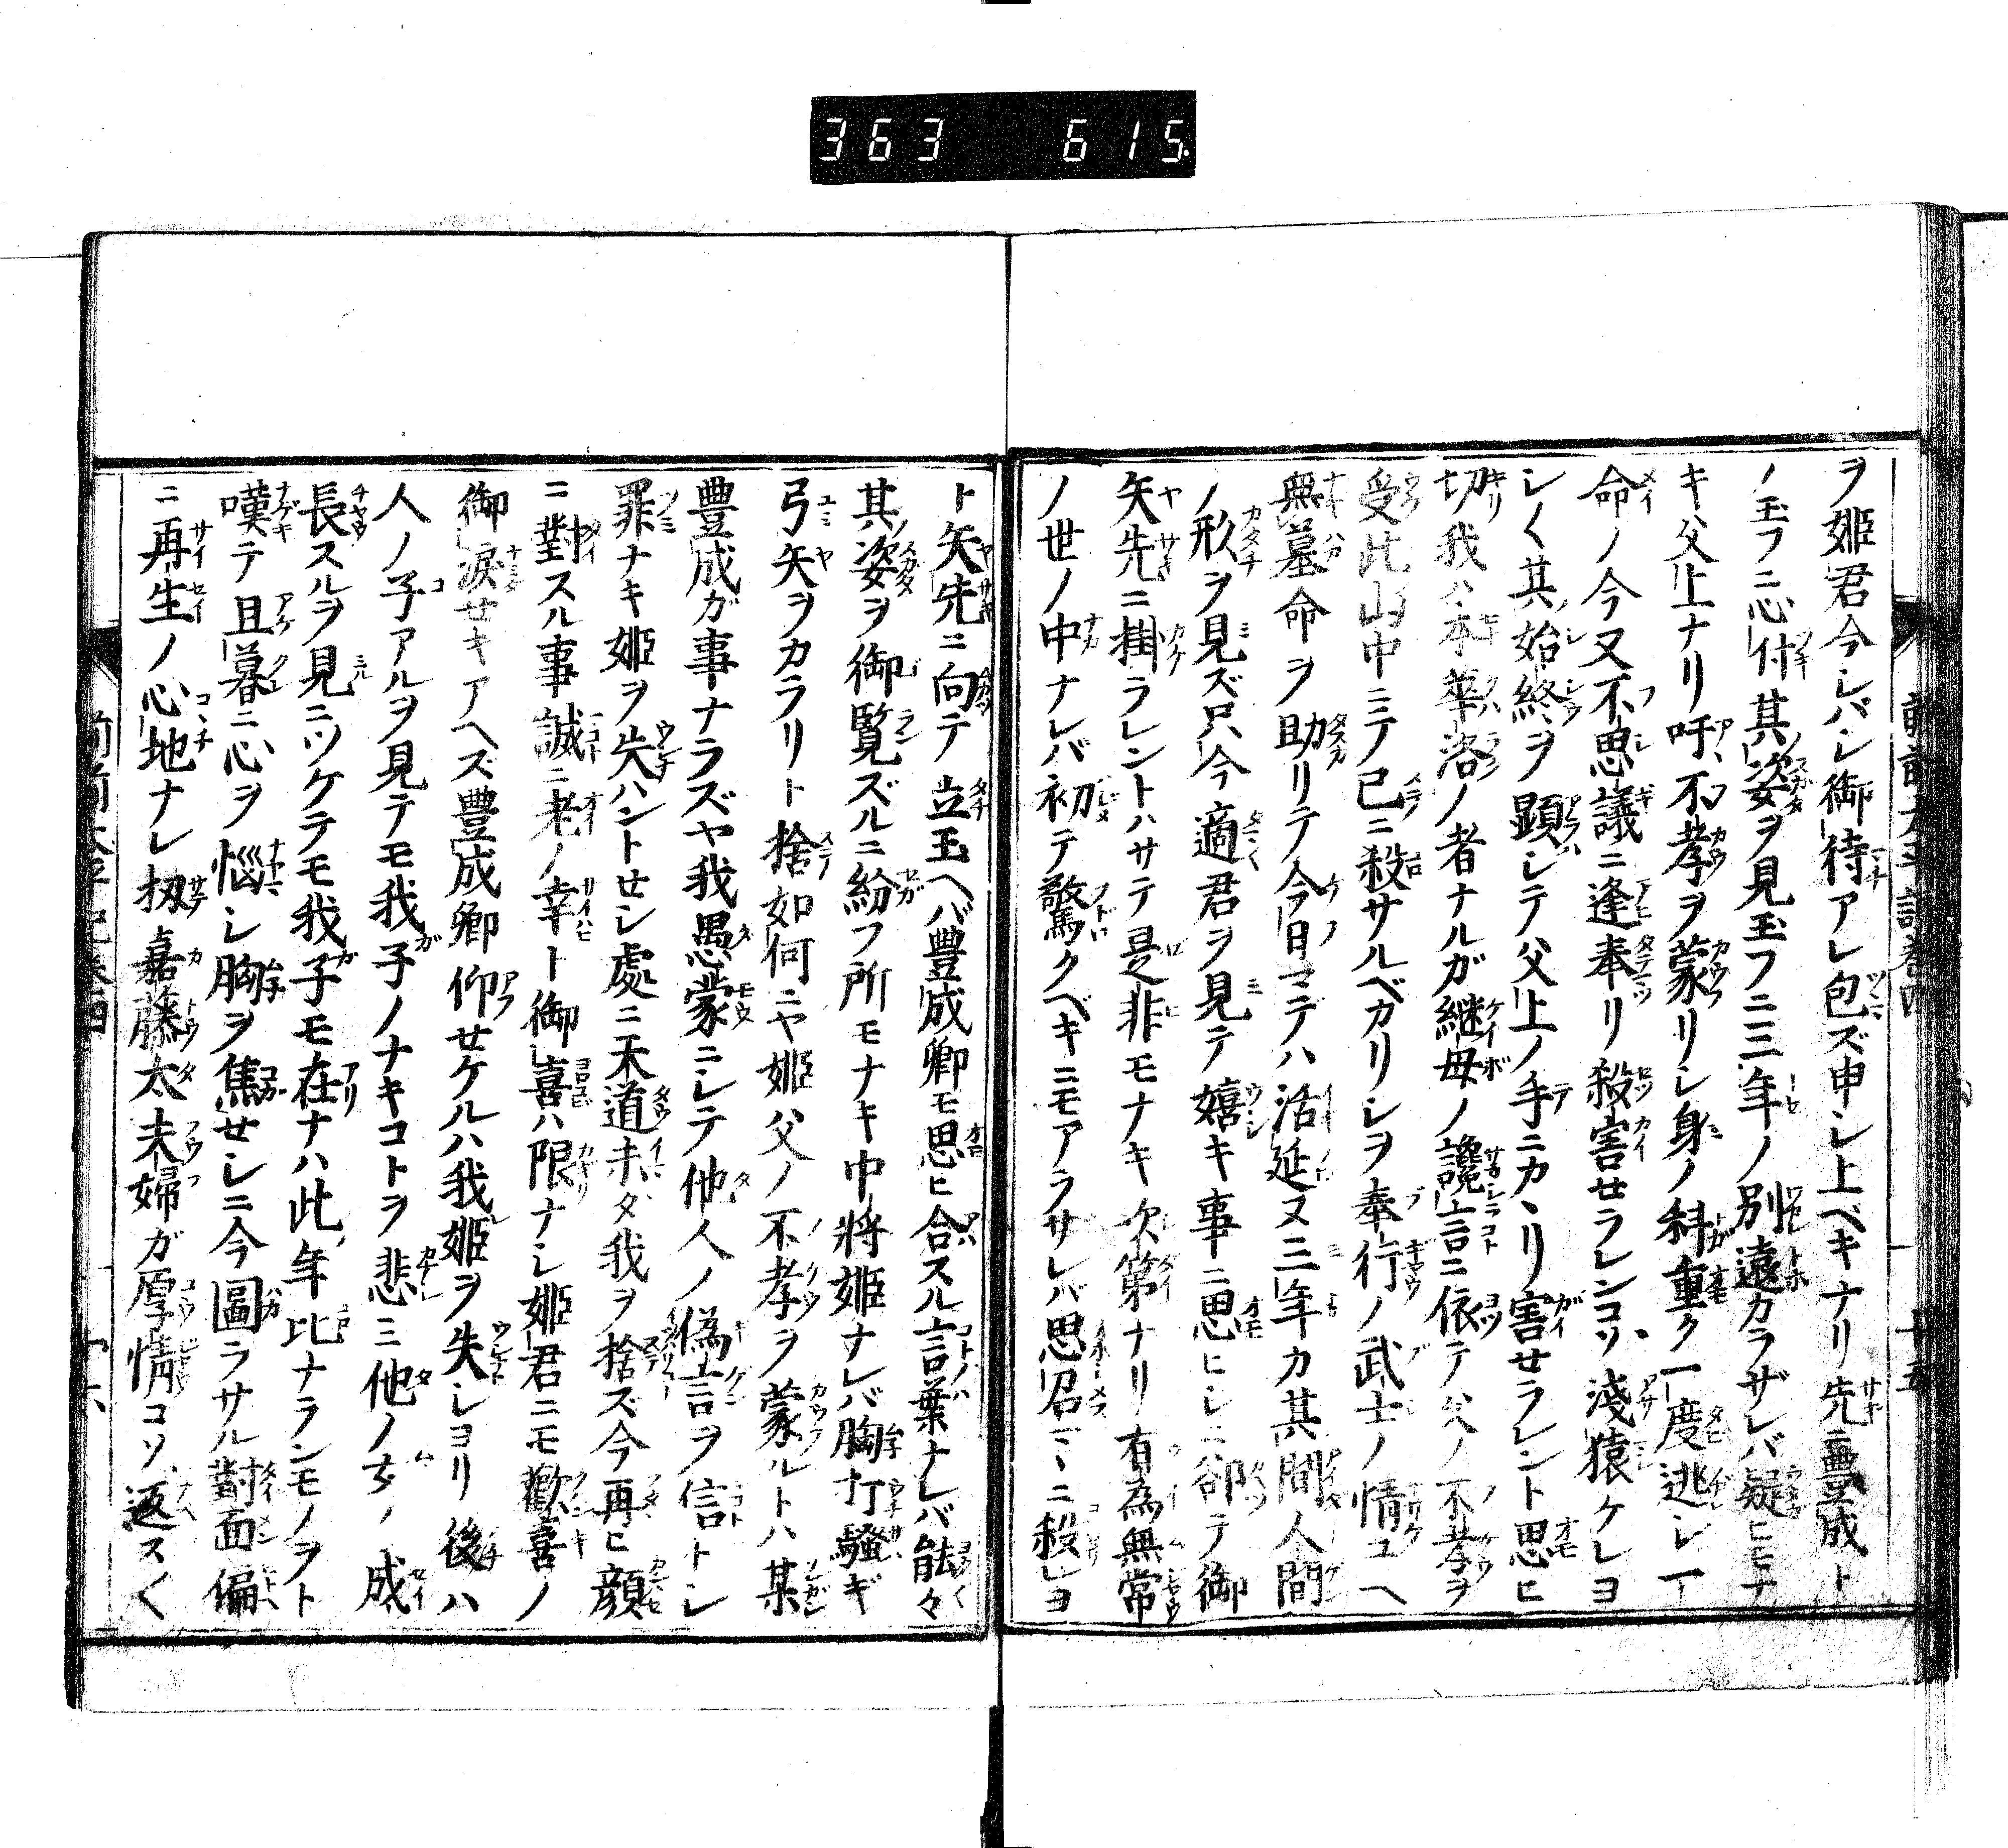 363 615
ヲ姫君今シバシ御待アレ包ズ申シ上ベキナリ先ニ豊成ト
ノ玉フニ心付其姿ヲ見玉フニ三年ノ別遠カラザレバ疑ヒモナ
キ父上ナリ吁不孝ヲ蒙リシ身ノ科重ク一度逃シ一
命ノ今又不思議ニ逢奉リ殺害セラレンコソ淺猿ケレヨ
シ〱其始終ヲ顕シテ父上ノ手ニカヽリ害セラレント思ヒ
切我ハ本華洛ノ者ナルガ継母ノ讒言ニ依テ父ノ不孝ヲ
受此山中ニテ已ニ殺サルベカリシヲ奉行ノ武士ノ情ユヘ
無墓命ヲ助リテ今日マデハ活延ヌ三年カ其間人間
ノ形ヲ見ズ只今適君ヲ見テ嬉キ事ニ思ヒシニ卻テ御
矢先ニ掛ラレントハサテ是非モナキ次第ナリ有為無常
ノ世ノ中ナレバ初テ驚クベキニモアラサレバ思召マヽニ殺シヨ
ト矢先ニ向テ立玉ヘバ豊成卿モ思ヒ合スル言葉ナレバ能々
其姿ヲ御覧ズルニ紛フ所モナキ中将姫ナレバ胸打騒ギ
弓矢ヲカラリト捨如何ニヤ姫父ノ不孝ヲ蒙ルトハ某
豊成ガ事ナラズヤ我愚蒙ニシテ他人ノ偽言ヲ信トシ
罪ナキ姫ヲ失ハントセシ處ニ天道未タ我ヲ捨ズ今再ヒ顔
ニ對スル事誠ニ老ノ幸ト御喜ハ限ナシ姫君ニモ歡喜ノ
御涙セキアヘズ豊成卿仰セケルハ我姫ヲ失シヨリ後ハ
人ノ子アルヲ見テモ我子ノナキコトヲ悲ミ他ノ女ノ成
長スルヲ見ニツケテモ我子モ在ナハ此年比ナランモノヲト
嘆テ且暮ニ心ヲ惱シ胸ヲ焦セシニ今圖ラサル對面偏
ニ再生ノ心地ナレ扨嘉藤太夫婦ガ厚情コソ返ス〱